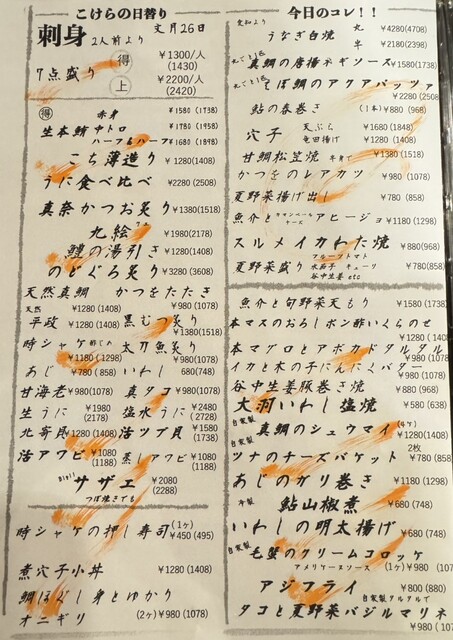 こけらの日替り
刺身 2人前より 文月26日
7点盛り 得 ¥1300/人
(1430)
上 ¥2200/人
(2420)
得 赤身 ¥1580 (1738)
生本鮪 中トロ ¥1780 (1958)
ハーフ&ハーフ ¥1680 (1898)
こち薄造り ¥1280(1408)
うに食べ比べ ¥2280 (2508)
真奈かつお炙り ¥1380(1518)
九絵 ¥1980(2178)
鱧の湯引き ¥1280(1408)
のどぐろ炙り ¥3280 (3608)
天然真鯛 かつをたたき
¥1280(1408) ¥980(1078)
天然
平政 ¥1280(1408) 黒むつ炙り
¥1380(1518)
時シャケ 太刀魚炙り
¥1180(1298) ¥980(1078)
あじ ¥780(858) いわし 680(748)
甘海老 ¥980(1078) 真タコ ¥980(1078)
生うに ¥1980
(2178) 塩水うに ¥2480
(2728)
北寄貝 ¥1280(1408) 活ツブ貝 ¥1580
(1738)
活アワビ ¥1080
(1188) 蒸しアワビ ¥1080
(1188)
サザエ ¥2080
(2288)
つぼ焼きでも
時シャケの押し寿司 (1ヶ)
¥450 (495)
煮穴子小丼 ¥1280 (1408)
鯛ほぐし身とゆかり
オニギリ (2ヶ) ¥980 (1078)
今日のコレ!!
愛知より
うなぎ白焼 丸 ¥4280(4708)
半 ¥2180(2398)
丸ごと1匹
真鯛の唐揚ネギソース ¥1580(1738)
丸ごと1匹
てぼ鯛のアクアパッツァ
¥2280 (2508
鮎の春巻き (1本) ¥880 (968)
穴子 天ぷら ¥1680 (1848)
竜田揚げ ¥1280 (1408)
甘鯛松笠焼 半身で ¥1380 (1518)
かつをのレアカツ ¥980 (1078)
夏野菜揚げ出し ¥780 (858)
魚介とカマンベールチーズアヒージョ ¥1180 (1298)
スルメイカわた焼 ¥880(968)
夏野菜盛り フルーツトマト
水茄子 キューリ
谷中生姜 etc ¥780(858)
魚介と旬野菜天もり ¥1580 (1738)
本マスのおろしポン酢いくらのせ
¥1280 (1408
本マグロとアボカドタルタル
¥980(1078)
イカと木の子にんにくバター
¥980 (1078)
谷中生姜豚巻き焼 ¥880 (968)
大羽いわし塩焼 ¥580 (638)
自家製
真鯛のシュウマイ (4ヶ)
¥1280(1408)
自家製
ツナのチーズバケット 2枚
¥780 (858)
あじのガリ巻き ¥1180 (1298)
鮎山椒煮 ¥680 (748)
いわしの明太揚げ ¥680 (748)
自家製
毛蟹のクリームコロッケ
アメリケーヌソース (1ヶ) ¥980 (1078)
アジフライ ¥800 (880)
自家製タルタルで
タコと夏野菜バジルマリネ
¥980 (107